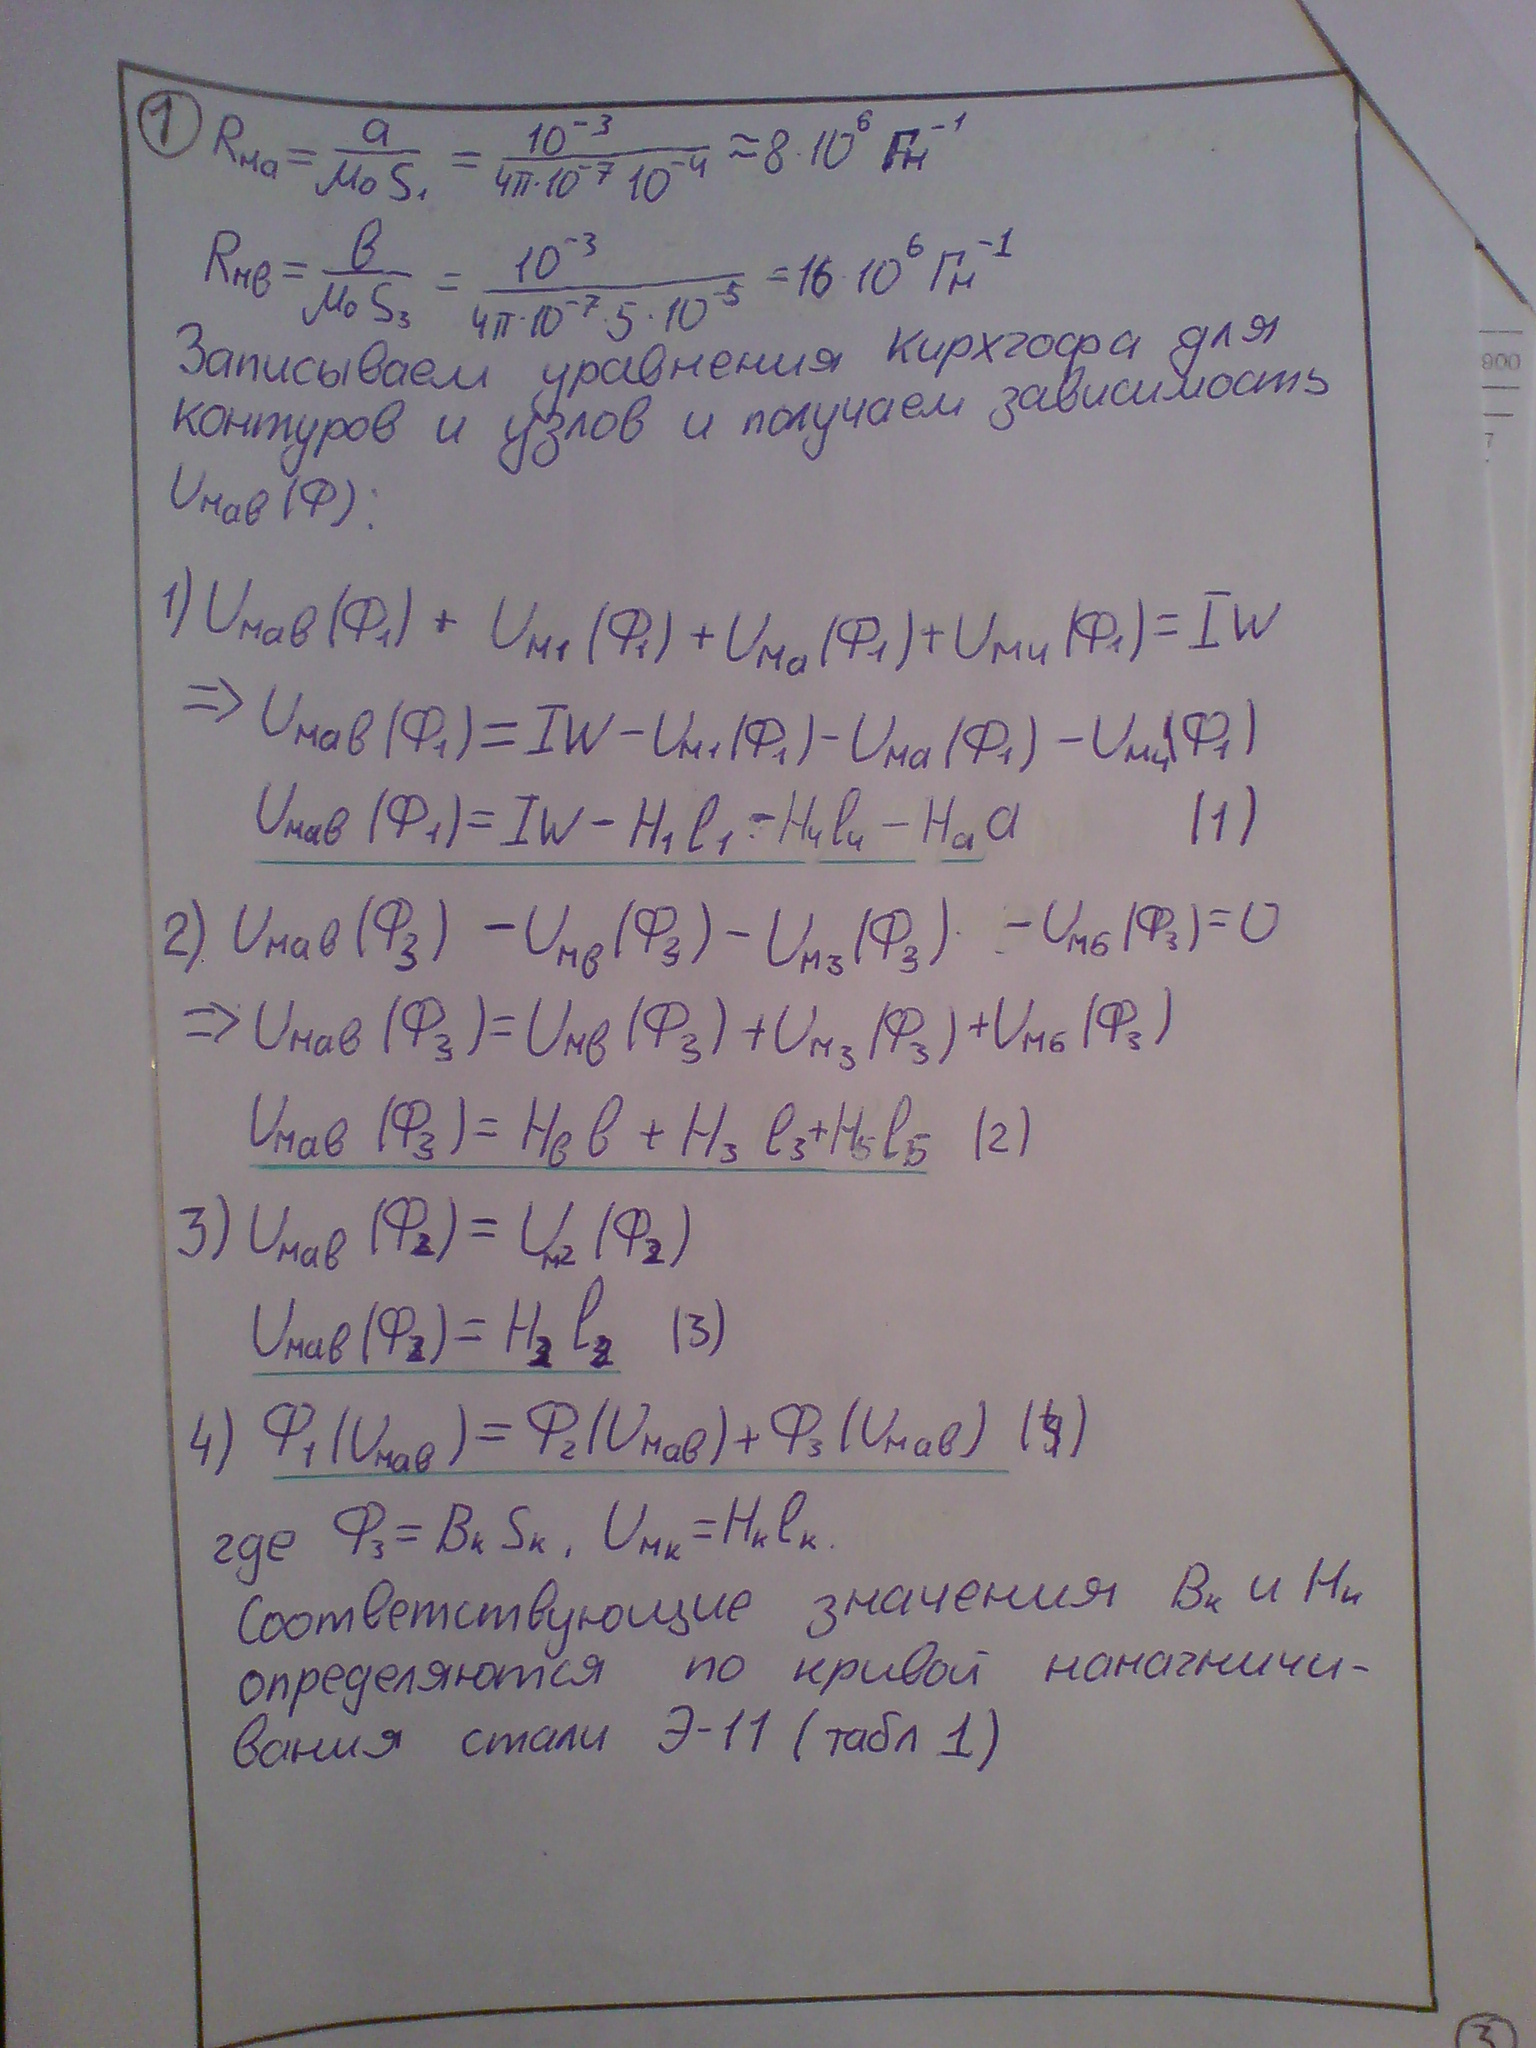 1
Rма = a / μ₀S₁ = 10⁻³ / 4π·10⁻⁷ 10⁻⁴ ≈ 8·10⁶ Гн⁻¹
Rмв = в / μ₀S₃ = 10⁻³ / 4π·10⁻⁷·5·10⁻⁵ = 16·10⁶ Гн⁻¹
Записываем уравнения Кирхгофа для
контуров и узлов и получаем зависимость
Uмав(Ф):
1) Uмав(Ф₁) + Uм₁(Ф₁) + Uма(Ф₁) + Uм₄(Ф₁) = IW
=> Uмав(Ф₁) = IW - Uм₁(Ф₁) - Uма(Ф₁) - Uм₄(Ф₁)
Uмав(Ф₁) = IW - H₁l₁ - H₄l₄ - Haa (1)
2) Uмав(Ф₃) - Uмв(Ф₃) - Uм₃(Ф₃) - Uм6(Ф₃) = 0
=> Uмав(Ф₃) = Uмв(Ф₃) + Uм₃(Ф₃) + Uм6(Ф₃)
Uмав(Ф₃) = Hвв + H₃ l₃ + H₅l₅ (2)
3) Uмав(Ф₂) = Uм₂(Ф₂)
Uмав(Ф₂) = H₂l₂ (3)
4) Ф₁(Uмав) = Ф₂(Uмав) + Ф₃(Uмав) (4)
где Ф₃ = Bк Sк, Uмк = Hкlк.
Соответствующие значения Bк и Hк
определяются по кривой намагничи-
вания стали Э-11 (табл 1)
3
900
7